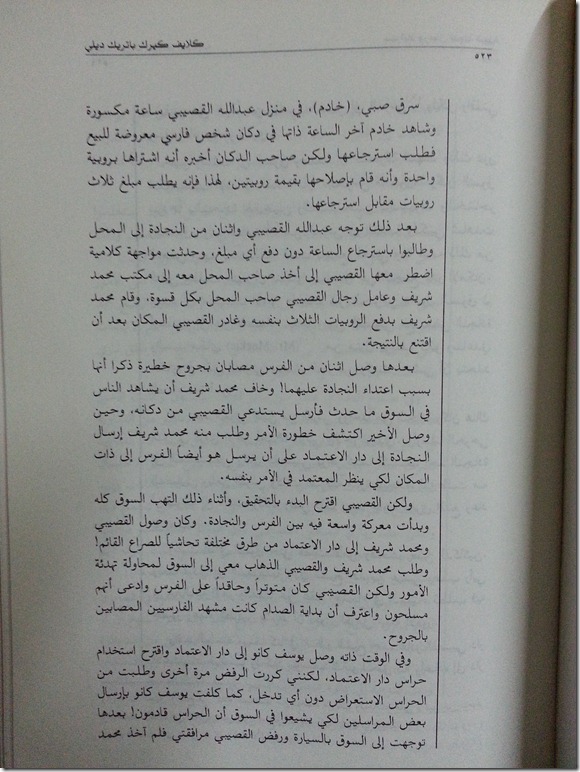 كلايف كيرك باتريك ديلي
٥٢٣
سرق صبي، (خادم)، في منزل عبدالله القصيبي ساعة مكسورة
وشاهد خادم آخر الساعة ذاتها في دكان شخص فارسي معروضة للبيع
فطلب استرجاعها ولكن صاحب الدكان أخبره أنه اشتراها بروبية
واحدة وأنه قام بإصلاحها بقيمة روبيتين، لهذا فإنه يطلب مبلغ ثلاث
روبيات مقابل استرجاعها.
بعد ذلك توجه عبدالله القصيبي واثنان من النجادة إلى المحل
وطالبوا باسترجاع الساعة دون دفع أي مبلغ، وحدثت مواجهة كلامية
اضطر معها القصيبي إلى أخذ صاحب المحل معه إلى مكتب محمد
شريف وعامل رجال القصيبي صاحب المحل بكل قسوة. وقام محمد
شريف بدفع الروبيات الثلاث بنفسه وغادر القصيبي المكان بعد أن
اقتنع بالنتيجة.
بعدها وصل اثنان من الفرس مصابان بجروح خطيرة ذكرا أنها
بسبب اعتداء النجادة عليهما! وخاف محمد شريف أن يشاهد الناس
في السوق ما حدث فأرسل يستدعي القصيبي من دكانه، وحين
وصل الأخير اكتشف خطورة الأمر وطلب منه محمد شريف إرسال
النجادة إلى دار الاعتماد على أن يرسل هو أيضاً الفرس إلى ذات
المكان لكي ينظر المعتمد في الأمر بنفسه.
ولكن القصيبي اقترح البدء بالتحقيق، وأثناء ذلك التهب السوق كله
وبدأت معركة واسعة فيه بين الفرس والنجادة. وكان وصول القصيبي
ومحمد شريف إلى دار الاعتماد من طرق مختلفة تحاشياً للصراع القائم!
وطلب محمد شريف والقصيبي الذهاب معي إلى السوق لمحاولة تهدئة
الأمور ولكن القصيبي كان متوتراً وحاقداً على الفرس وادعى أنهم
مسلحون واعترف أن بداية الصدام كانت مشهد الفارسيين المصابين
بالجروح.
وفي الوقت ذاته وصل يوسف كانو إلى دار الاعتماد واقترح استخدام
حراس دار الاعتماد، لكنني كررت الرفض مرة أخرى وطلبت من
الحراس الاستعراض دون أي تدخل. كما كلفت يوسف كانو بإرسال
بعض المراسلين لكي يشيعوا في السوق أن الحراس قادمون! بعدها
توجهت إلى السوق بالسيارة ورفض القصيبي مرافقتي فلم آخذ محمد